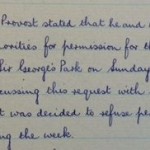 Provost stated that he and
orities for permission for th
Sir George's Park on Sunday
cussing this request with
t was decided to refuse pe
ng the week.